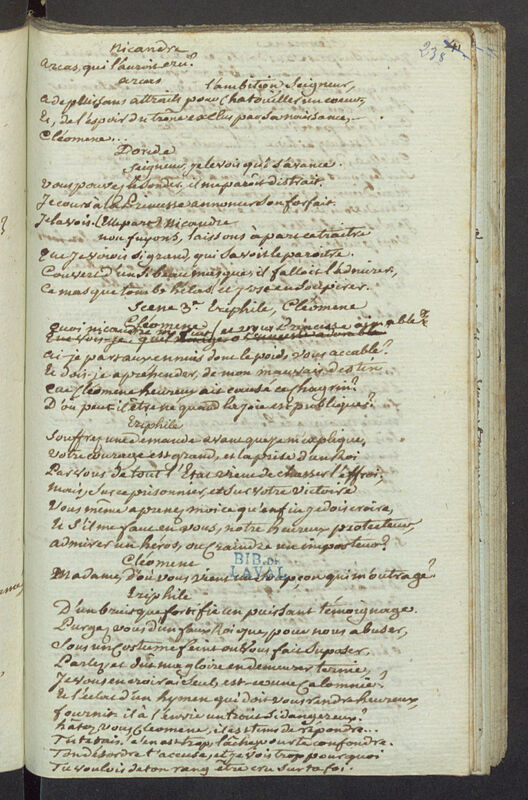 238
Nicandre
Arcas, qui l'auroit cru?
arcas
l'ambition Seigneur,
a de puissans attraits pour chatouiller un coeur,
Et, de l'espoir du trône exclus par sa naissance,
Cléomene...
Doride
Seigneur, je le vois qui s'avance.
Vous pouvez le sonder, il me paroît distrait.
Je cours à la Princesse annoncer son forfait.
Je la vois. (Elle part) Nicandre
non fuyons, laissons à part ce traitre
que je voiois si grand, qui savoit le paroître.
Couvert d'un si beau masque, il falloit l'admirer,
Ce masque tombe helas! et j'ose en soupirer.
Scene 3e. Eriphile, Cléomene
Cléomene
quoi nicandre me fuit, et vous Princesse aimable?
Ai-je part aux ennuis dont le poids vous accable?
Et dois-je apréhender, de mon mauvais destin
que Cléomene heureux ait causé ce chagrin?
D'où peut-il être né quand la joie est publique?
Eriphile
Souffrez une demande avant que je m'explique,
votre courage est grand, et la prise d'un Roi
Par vous de tout l'Etat vient de chasser l'effroi;
mais, sur ce prisonnier et sur votre victoire
Vous même aprenez moi ce qu'enfin je dois croire,
Et s'il me faut en vous, notre heureux protecteur,
admirer un héros, ou craindre un imposteur?
Cléomene
Madame, d'où vous vient un soupçon qui m'outrage?
Eriphile
D'un bruit que fortifie un puissant témoignage.
Purgez vous d'un faux Roi que, pour nous abuser,
Sous un costume feint on vous fait suposer,
Parlez, et dût ma gloire en demeurer ternie,
Je vous en croirai seul: est-ce une calomnie?
Et l'éclat d'un hymen qui doit vous rendre heureux,
fournit-il à l'envie un trait si dangereux?
hâtez vous Cléomene, il est tems de répondre...
Tu te tais, c'en est trop, lâche, pour te confondre.
Ton désordre t'accuse, et je vois trop pourquoi
Tu voulois de ton rang être cru sur ta foi.
BIB. DE
LAVAL